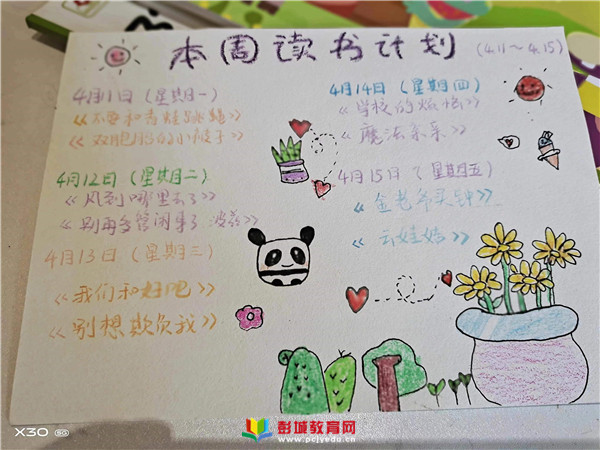 本周读书计划 (4.11～4.15)
4月11日（星期一）
《不要和青蛙跳绳》
《双胞胎的小辫子》
4月12日（星期二）
《风到哪里去了》
《别再多管闲事了 波茲》
4月13日（星期三）
《我们和好吧》
《别想欺负我》
4月14日（星期四）
《学校的烦恼》
《魔法亲亲》
4月15日（星期五）
《金老爷买钟》
《云娃娃》
X30 5G
彭城教育网
www.pcjyedu.cn